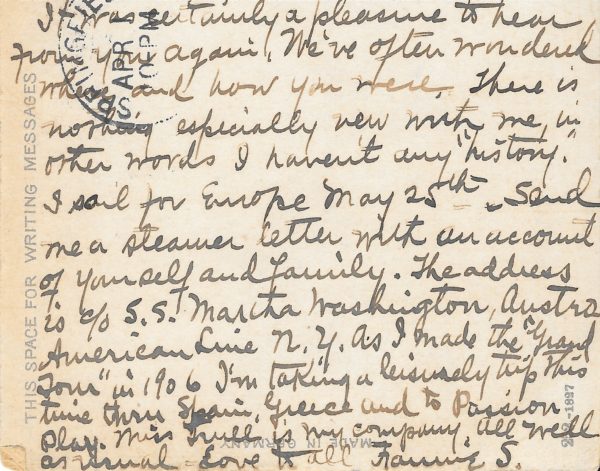 It was certainly a pleasure to hear
from you again. We've often wondered
where and how you were. There is
nothing especially new with me, in
other words I haven't any "history."
I sail for Europe May 25th - Send
me a steamer letter with an account
of yourself and family. The address
is c/o S.S. Martha Washington, Austro
American Line N.Y. As I made the "Grand
Tour" in 1906 I'm taking a leisurely trip this
time thru Spain, Greece and to Passion
Play. Miss is my company. All well
as usual - Love to all Fannie S.
THIS SPACE FOR WRITING MESSAGES
SPRINGFIE
APR
PM
MADE IN GERMANY